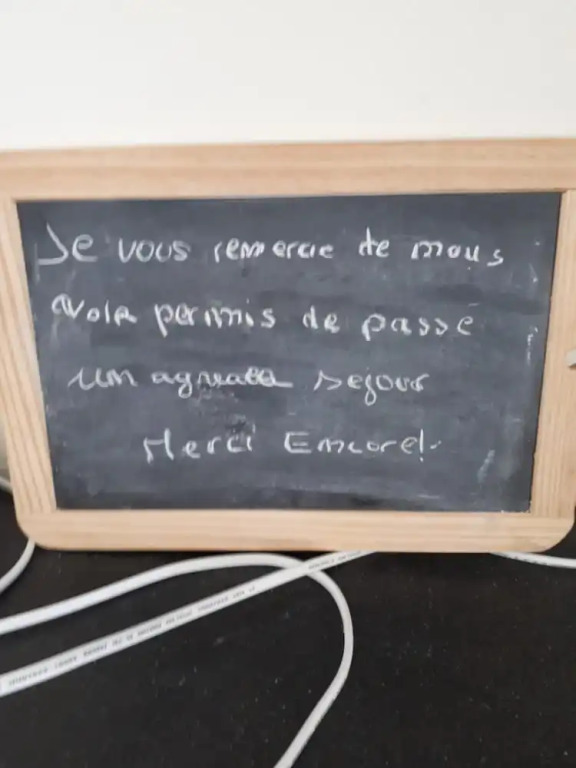 Je vous remercie de nous
avoir permis de passé
un agréable séjour
Merci Encore!